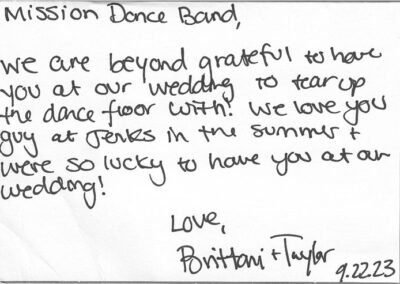 Mission Dance Band,
we are beyond grateful to have
you at our wedding to tear up
the dance floor with! We love you
guy at Jerks in the summer +
were so lucky to have you at our
wedding!
Love,
Brittani + Taylor
9.22.23